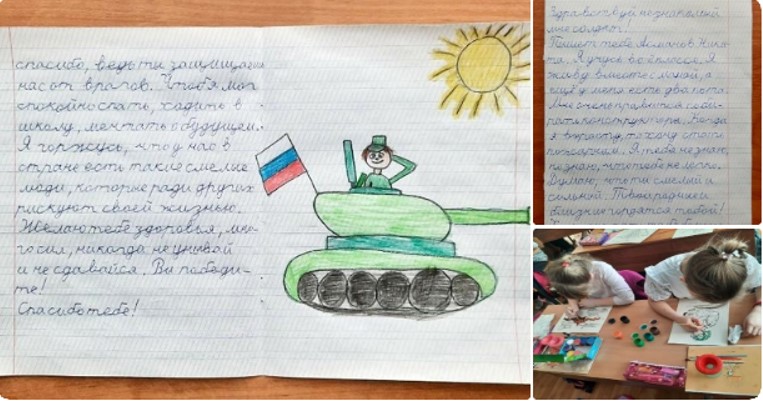 спасибо, ведь ты защищаешь
нас от врагов. Чтоб я мог
спокойно спать, ходить в
школу, мечтать о будущем.
Я горжусь, что у нас в
стране есть такие смелые
люди, которые ради других
рискуют своей жизнью.
Желаю тебе здоровья, мно-
го сил, никогда не унывай
и не сдавайся. Вы победи-
те!
Спасибо тебе!
Здравствуй незнакомый
мне солдат!
Пишет тебе Асманов Ники-
та. Я учусь во классе. Я
живу вместе с мамой, а
ещё у меня есть два кота.
Мне очень нравится соби-
рать конструкторы. Когда
я вырасту, то хочу стать
пожарным. Я тебя не знаю,
но знаю, что тебе не легко.
Думаю, что ты смелый и
сильный. Твои родные и
близкие гордятся тобой!